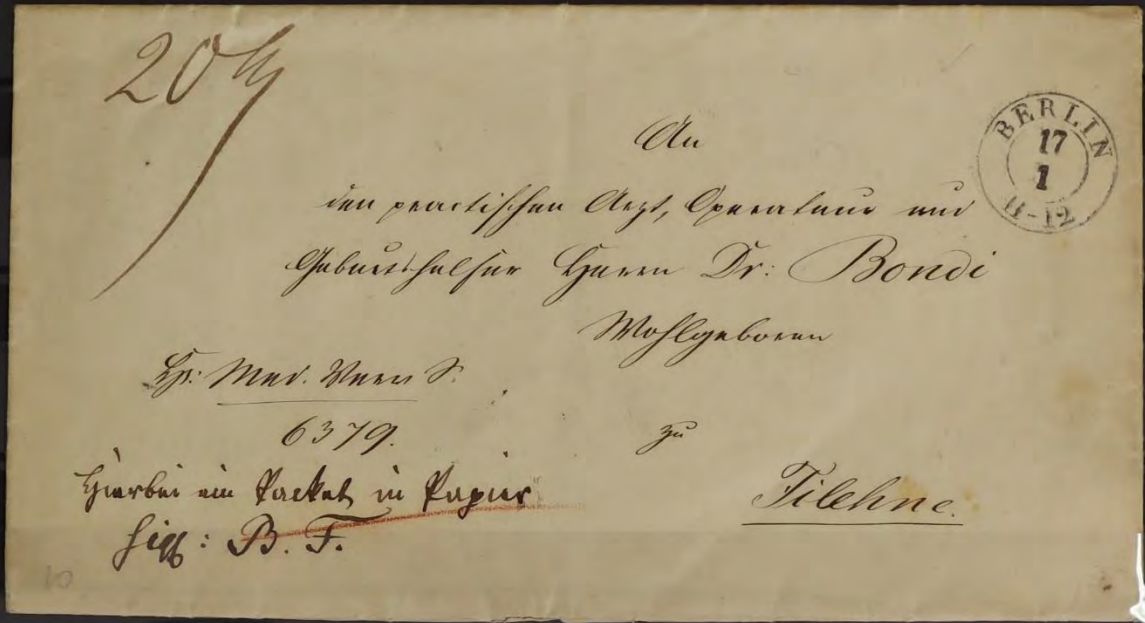 20
BERLIN
17
1
11-12
An
den practischen Arzt, Operateur und
Geburtshelfer Herrn Dr: Bondi
Wohlgeboren
Med. Verm S.
6379.
zu
Hierbei ein Packet in Papier
sig: B. F.
Filehne.
10